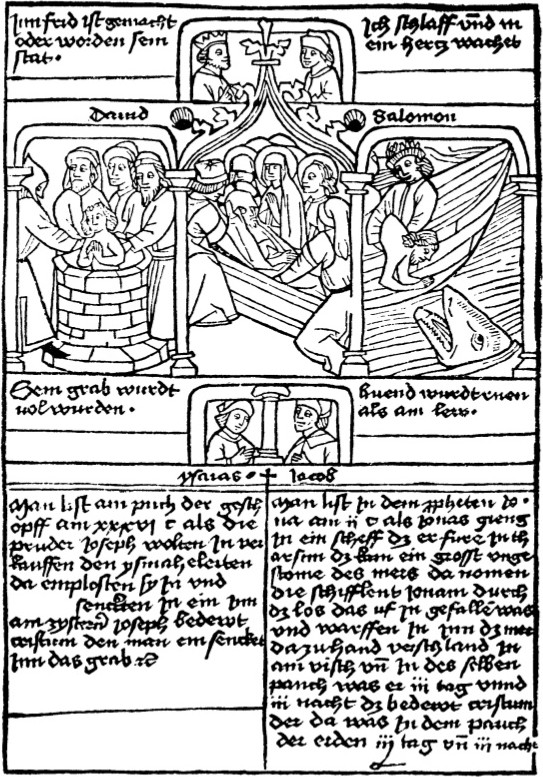 Im frid ist gemacht
oder worden sein
stat.
Ich schlaff vnd m
ein hertz wachet
Dauid
Salomon
Sein grab wurdt
vol wurden.
huend wurdt ruen
als am lew.
ysaias.
Iacob
Man list am puch der gesch
opff am xxxvi c als die
pruder Joseph wolten in ver
kauffen den ysmaheleiten
da emplosten sy in vnd
senckten in ein inn
am zystern Joseph bedewt
cristum den man ein sencket
inn das grab
Man list in dem propheten Jo
na am ii c als Jonas gieng
in ein scheff dz er fure in th
arsim dz kam ein gross vnge
stome des mers da nomen
die schifflent Jonam durch
dz los das vf in gefalle was
vnd warffen in inn dz mer
da zuhand verschland in
am visch vn in des selben
pauch was er iii tag vnnd
iii nacht dz bedewt cristum
der da was in dem pauch
der erden iij tag vn iii nacht